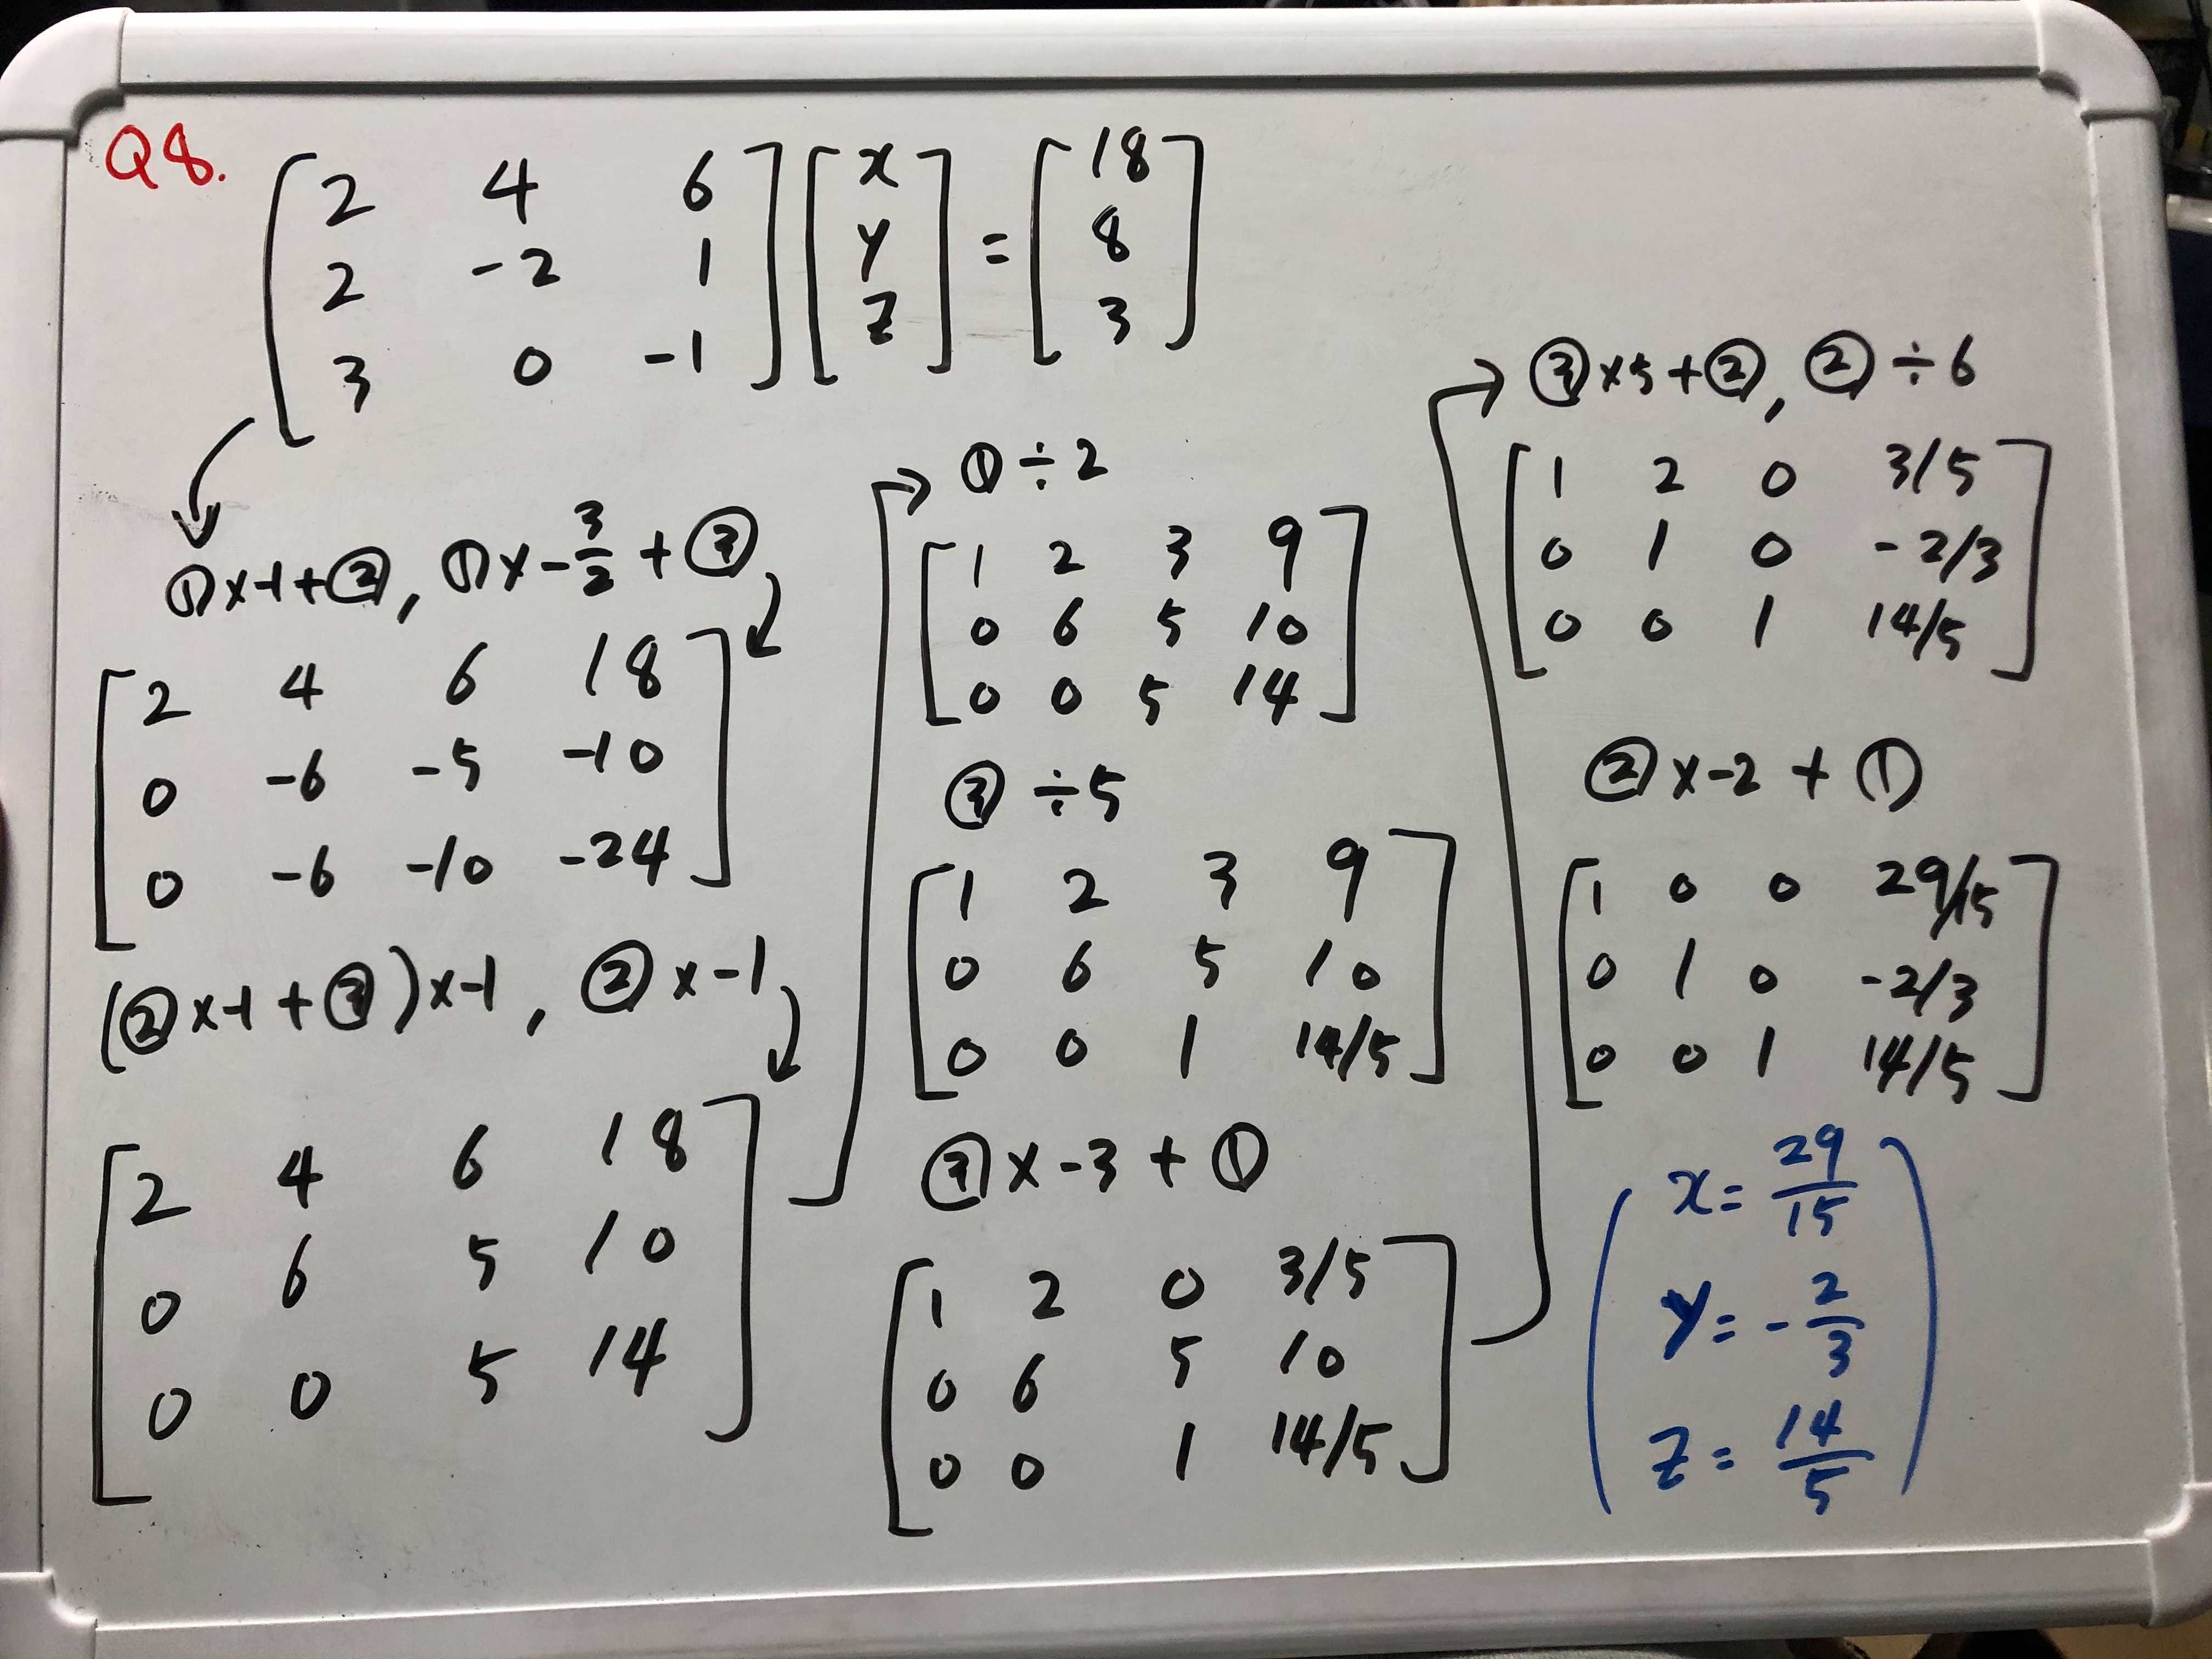 Q8.
[2 4 6] [x] = [18]
[2 -2 1] [y] [8]
[3 0 -1] [z] [3]
①x-1+②, ①x-3/2+③
[2 4 6 18]
[0 -6 -5 -10]
[0 -6 -10 -24]
(②x-1+③)x-1, ②x-1
[2 4 6 18]
[0 6 5 10]
[0 0 5 14]
①÷2
[1 2 3 9]
[0 6 5 10]
[0 0 5 14]
③÷5
[1 2 3 9]
[0 6 5 10]
[0 0 1 14/5]
③x-3+①
[1 2 0 3/5]
[0 6 5 10]
[0 0 1 14/5]
③x5+②, ②÷6
[1 2 0 3/5]
[0 1 0 -2/3]
[0 0 1 14/5]
②x-2+①
[1 0 0 29/15]
[0 1 0 -2/3]
[0 0 1 14/5]
x=29/15
y=-2/3
z=14/5